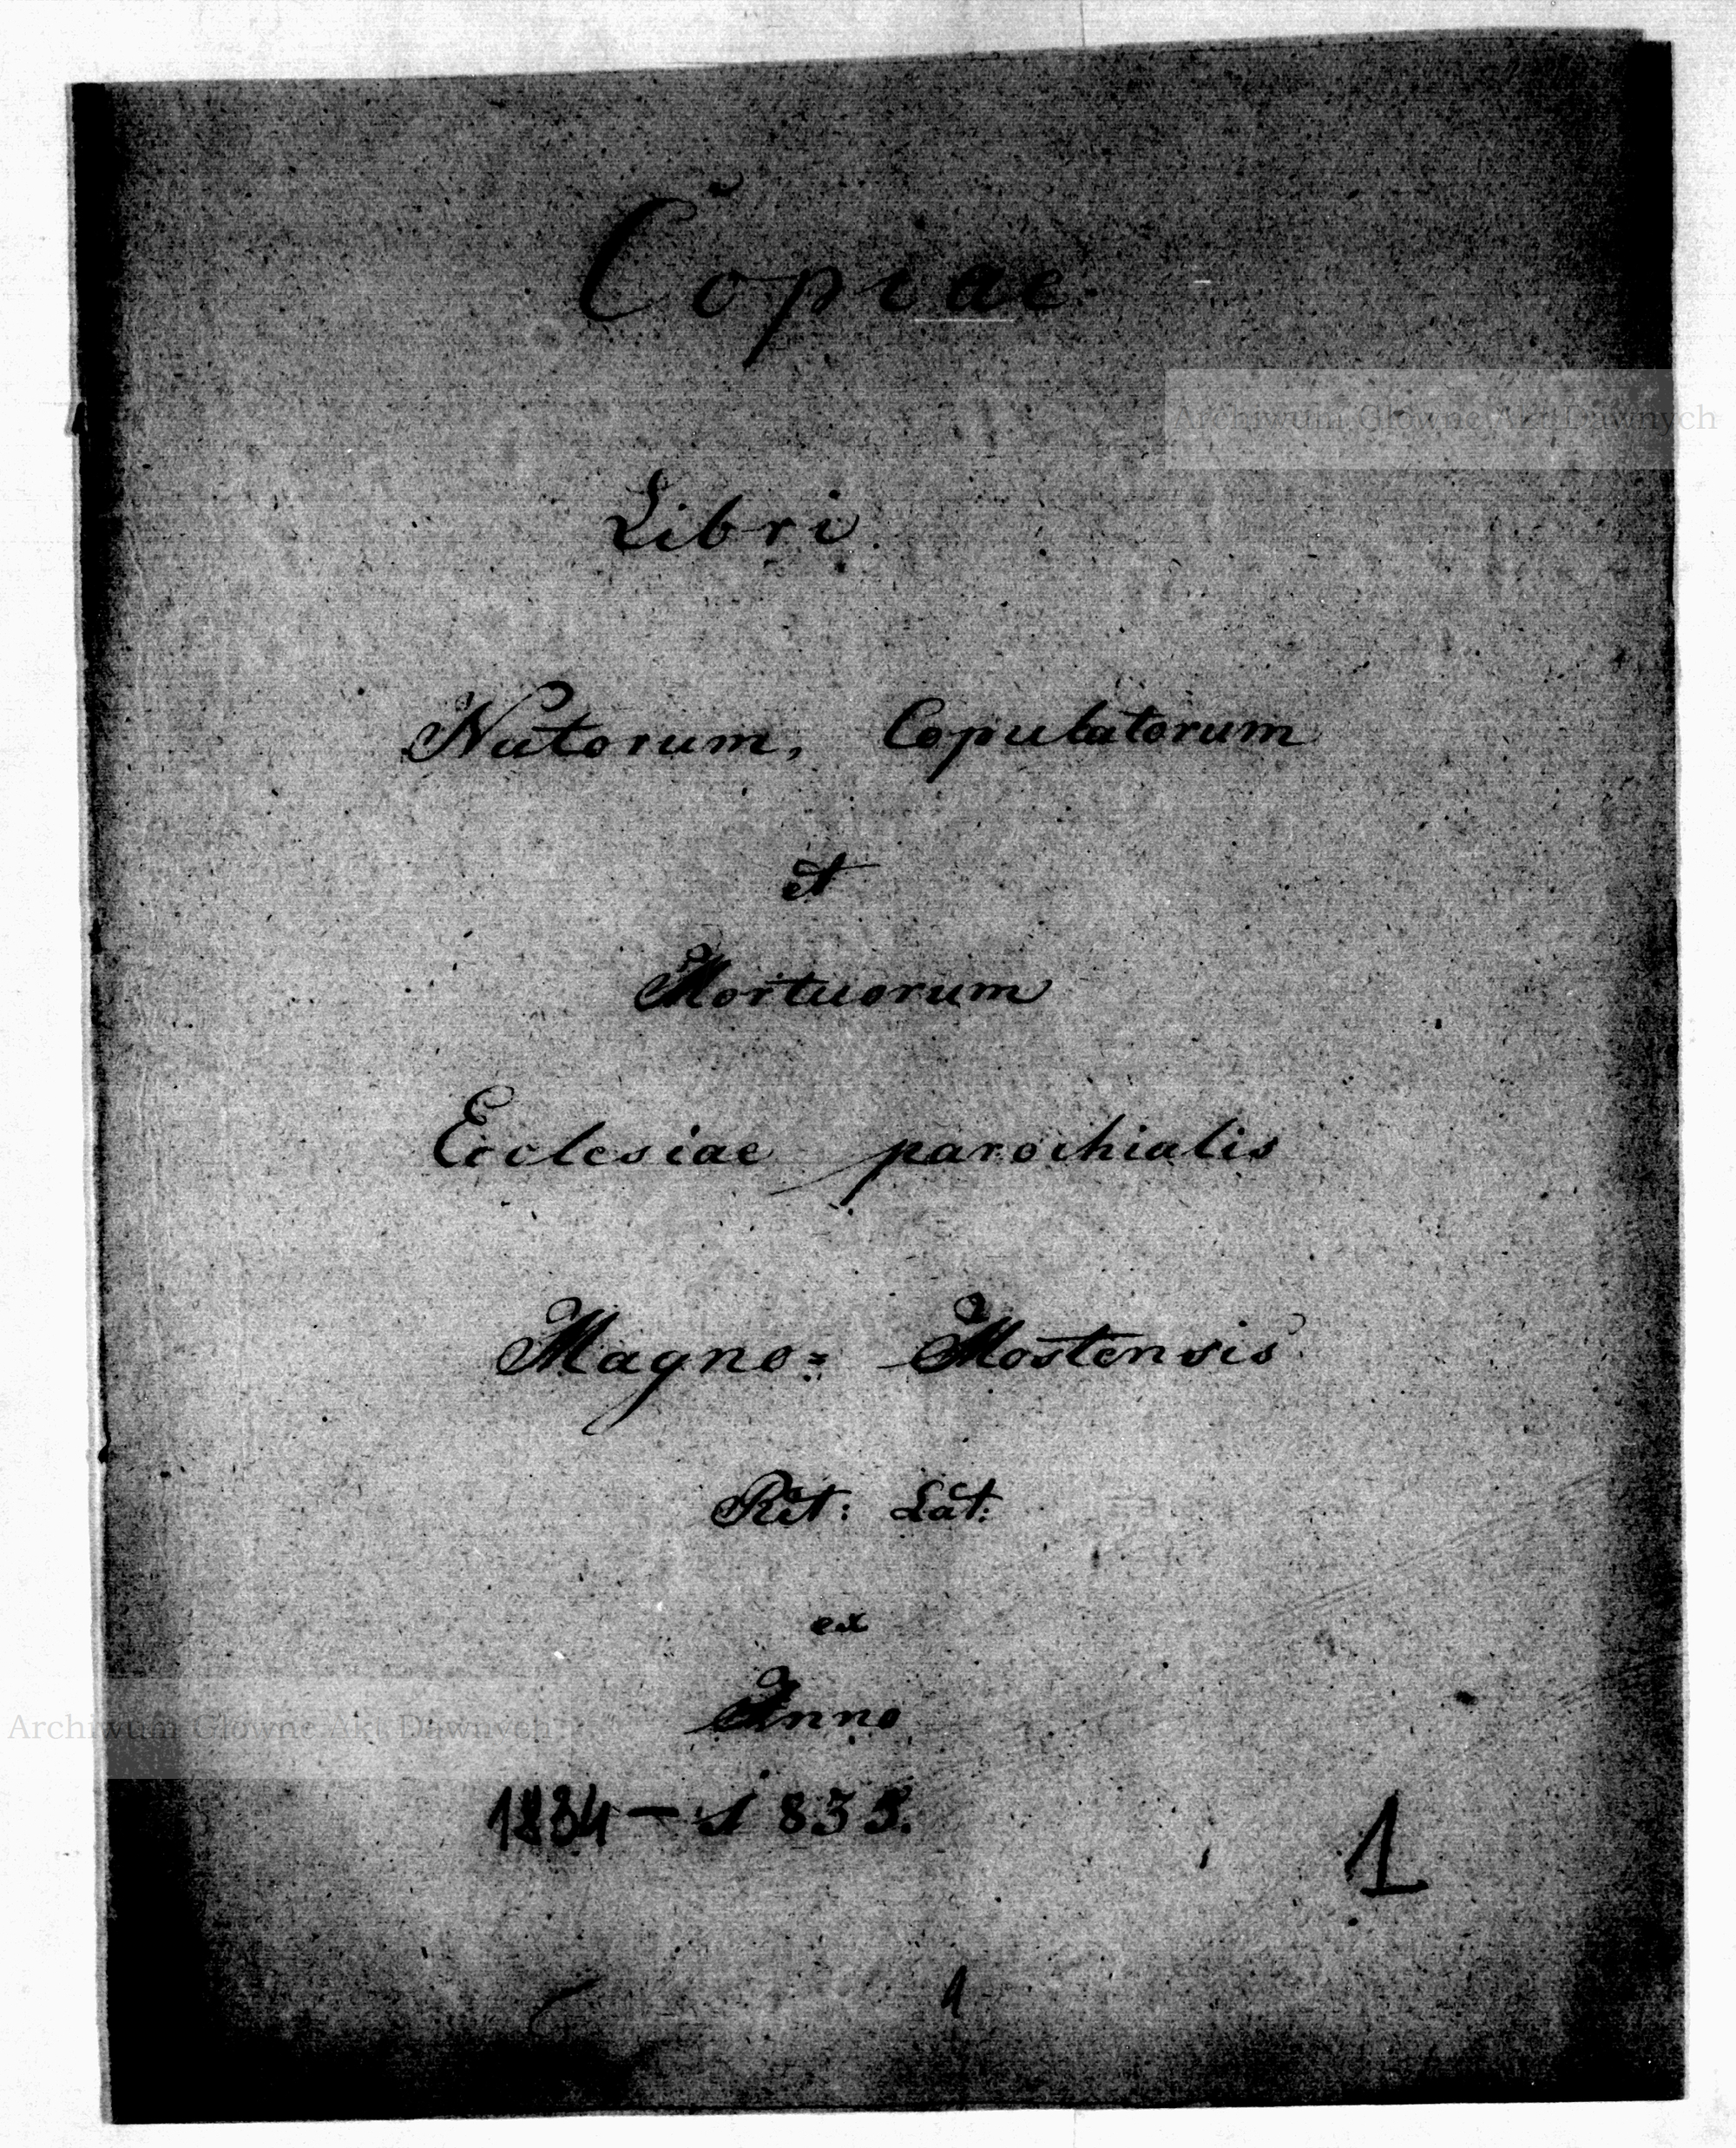 Copiae
Archiwum Główne Akt Dawnych
Libri
Natorum, Copulatorum
et
Mortuorum
Ecclesiae parochialis
Magno= Mostensis
Rit: Lat:
ex
Anno
Archiwum Główne Akt Dawnych
1834 – 1835.
1
1